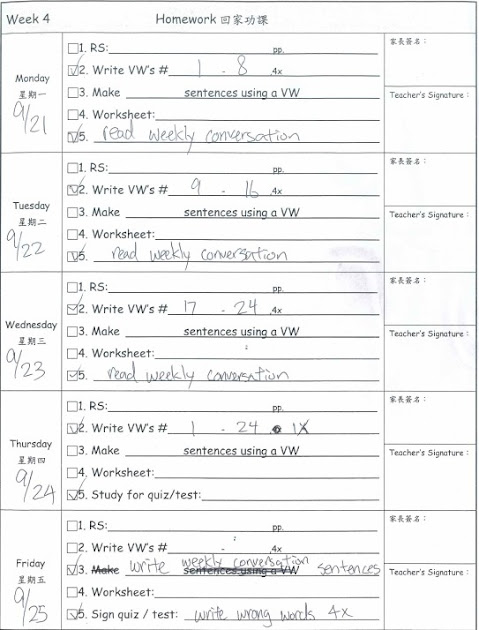 Week 4 Homework 回家功課
Monday
星期一
9/21
1. RS: pp.
2. Write VW's # 1 - 8 ,4x
3. Make sentences using a VW
4. Worksheet:
5. read weekly conversation
家長簽名：
Teacher's Signature：
Tuesday
星期二
9/22
1. RS: pp.
2. Write VW's # 9 - 16 ,4x
3. Make sentences using a VW
4. Worksheet:
5. read weekly conversation
家長簽名：
Teacher's Signature：
Wednesday
星期三
9/23
1. RS: pp.
2. Write VW's # 17 - 24 ,4x
3. Make sentences using a VW
4. Worksheet:
5. read weekly conversation
家長簽名：
Teacher's Signature：
Thursday
星期四
9/24
1. RS: pp.
2. Write VW's # 1 - 24 1x
3. Make sentences using a VW
4. Worksheet:
5. Study for quiz/test:
家長簽名：
Teacher's Signature：
Friday
星期五
9/25
1. RS: pp.
2. Write VW's # - ,4x
3. Make write weekly conversation sentences using a VW sentences
4. Worksheet:
5. Sign quiz / test: write wrong words 4x
家長簽名：
Teacher's Signature：